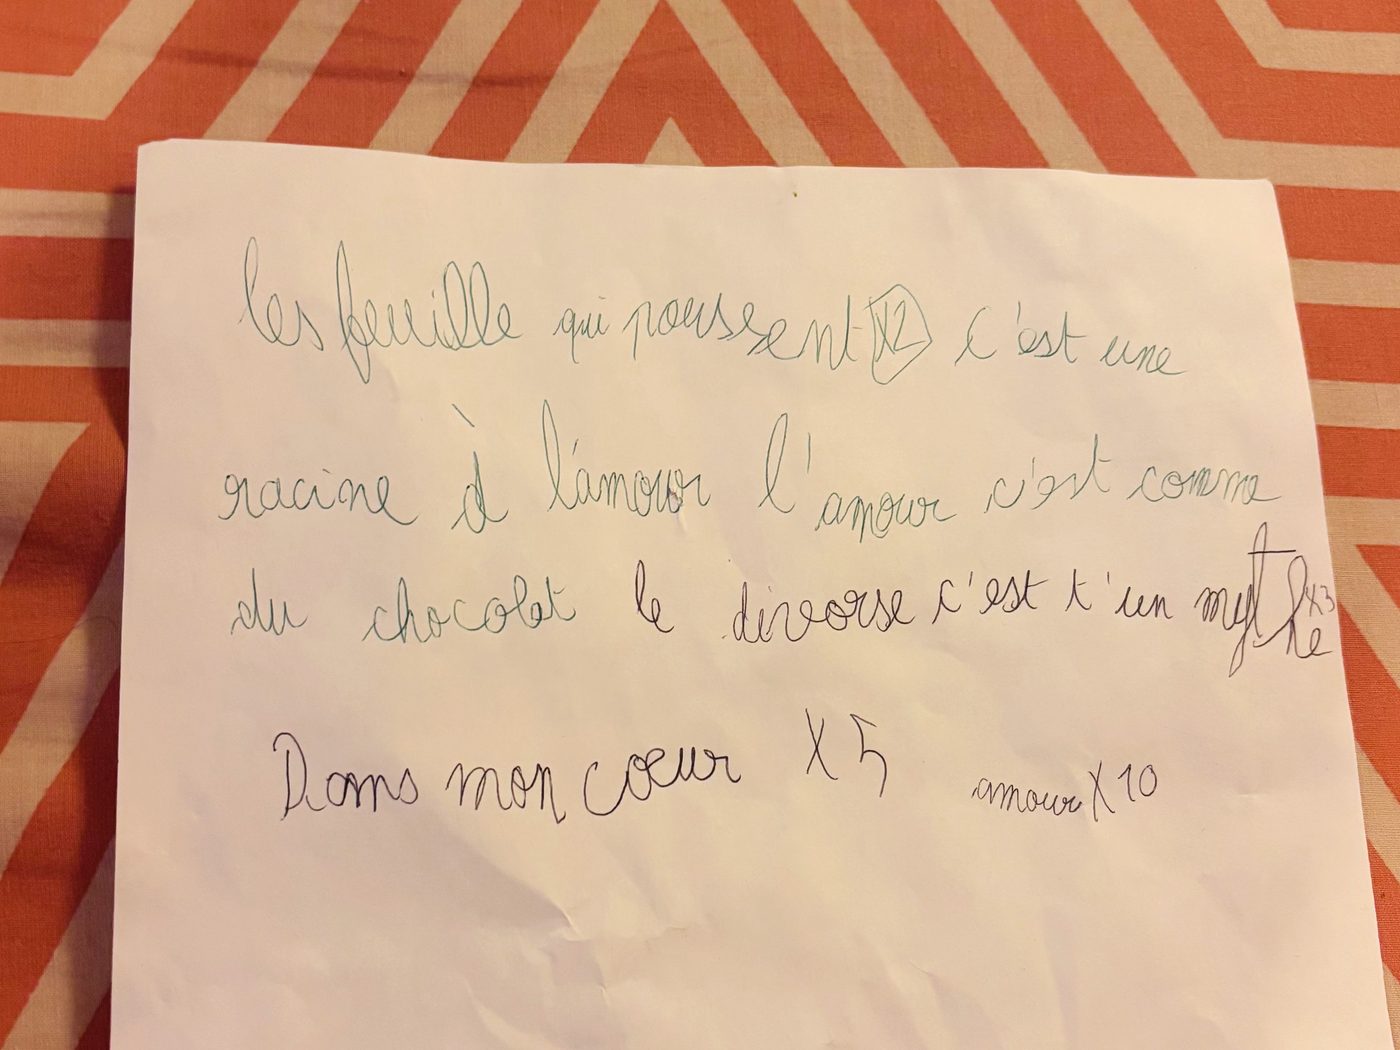 les feuille qui poussent x2 c'est une
racine à l'amour l'amour c'est comme
du chocolat le divorse c'est t'un mythe x3
Dans mon coeur X 5 amour X 10